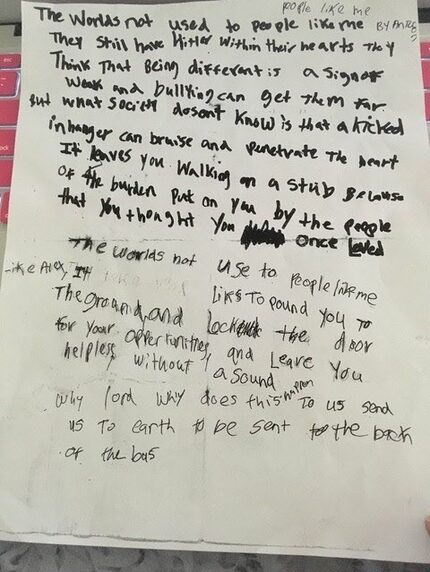 people like me
The Worlds not used to people like me BY Antco
They Still have Hitler Within their hearts They
Think That Being different is a Sign of
Weak and bullying can get Them far
But what Society dosent Know is that a kicked
in hanger can bruise and penetrate The heart
It leaves you Walking on a stub Because
Of the burden Put on you by the people
that you thought you once Loved
The worlds not use to People like me
Like Alex, It Likes To pound you To
The ground, and lock the door
for your opportunities, and Leave You
helpless without a sound
why lord why does this happen To us send
us To earth to be sent to the back
of the bus